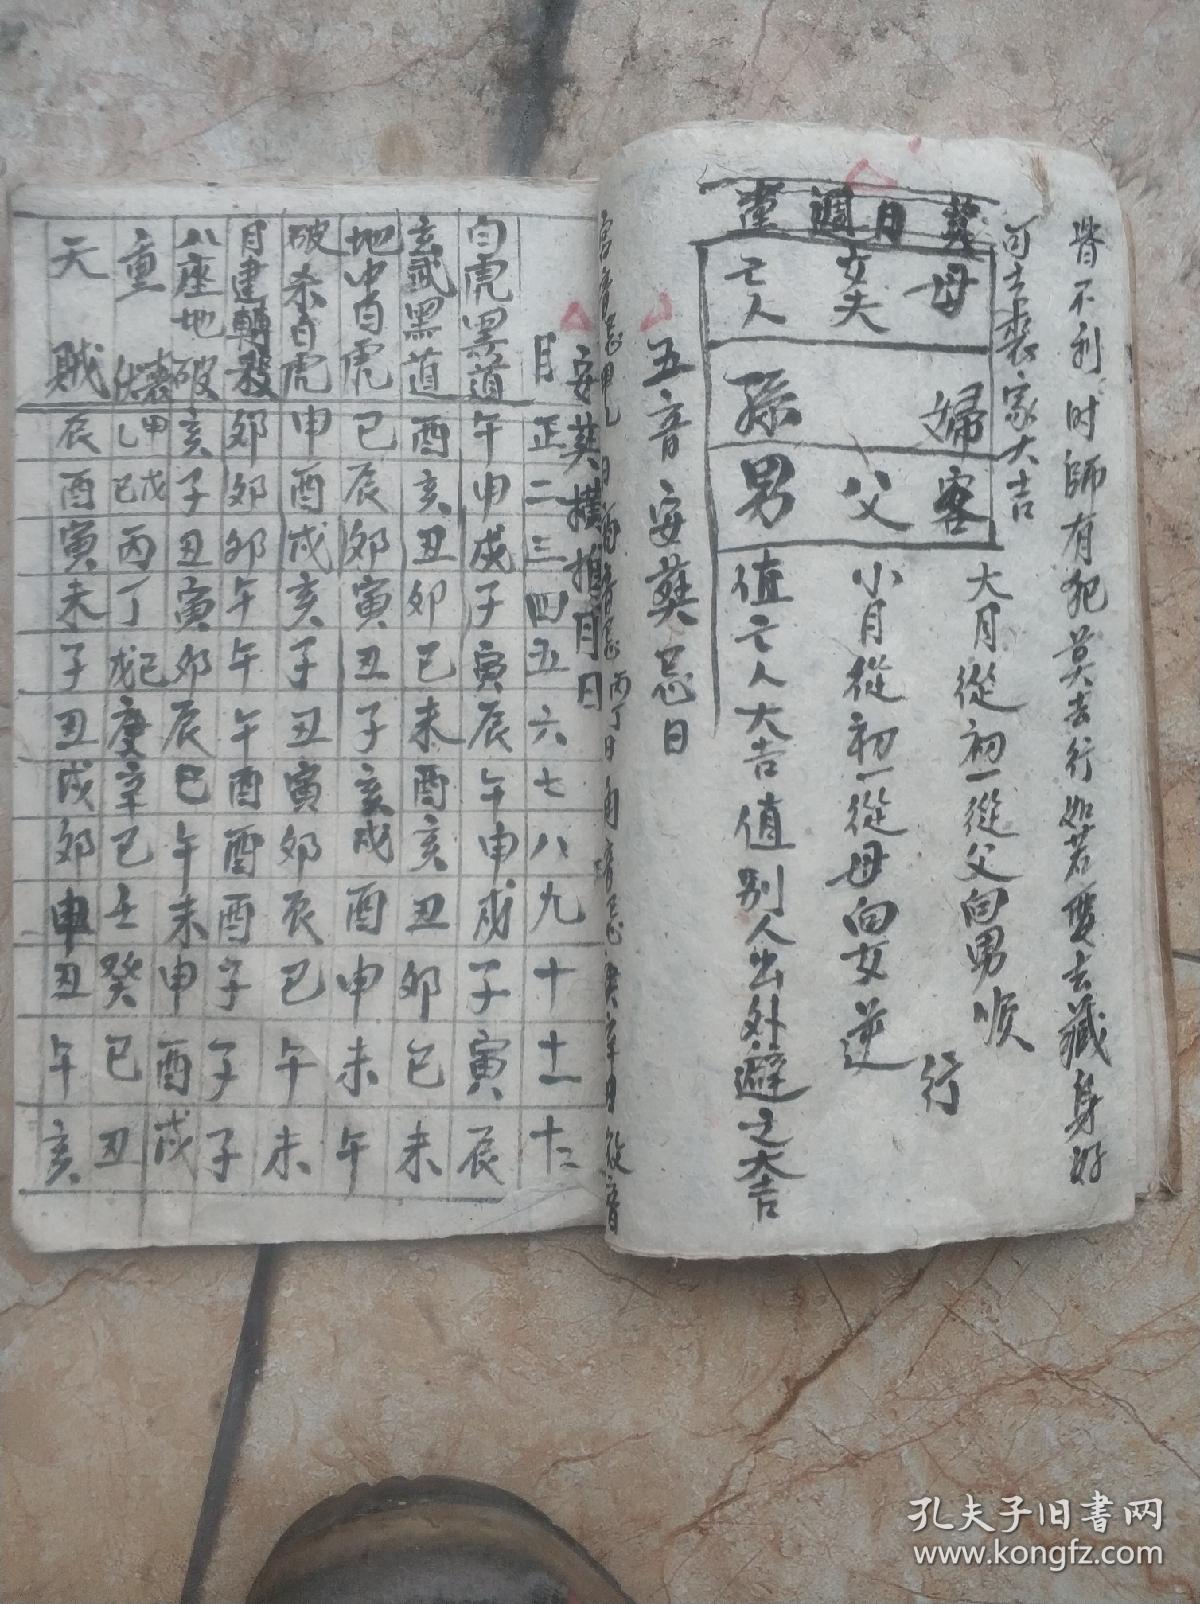 皆不利时師有犯莫去行如若要去藏身好
可去喪家大吉
葬日週堂
母 女夫 亡人
婦 孫
客 父 男
大月從初一從父向男順
行
小月從初一從母向女逆
值亡人大吉值别人出外避之大吉
五音安葬忌日
安葬橫推月日
月 正 二 三 四 五 六 七 八 九 十 十一 十二
白虎黑道 午 申 戌 子 寅 辰 午 申 戌 子 寅 辰
玄武黑道 酉 亥 丑 卯 巳 未 酉 亥 丑 卯 巳 未
地中白虎 巳 辰 卯 寅 丑 子 亥 戌 酉 申 未 午
破杀白虎 申 酉 戌 亥 子 丑 寅 卯 辰 巳 午 未
月建轉殺 卯 卯 卯 午 午 午 酉 酉 酉 子 子 子
八座地破 亥 子 丑 寅 卯 辰 巳 午 未 申 酉 戌
重喪 甲乙 戊巳 丙 丁 己戌 庚 辛 巳 壬 癸 巳 丑
天賊 辰 酉 寅 未 子 丑 戌 卯 申 丑 午 亥
孔夫子旧书网
www.kongfz.com